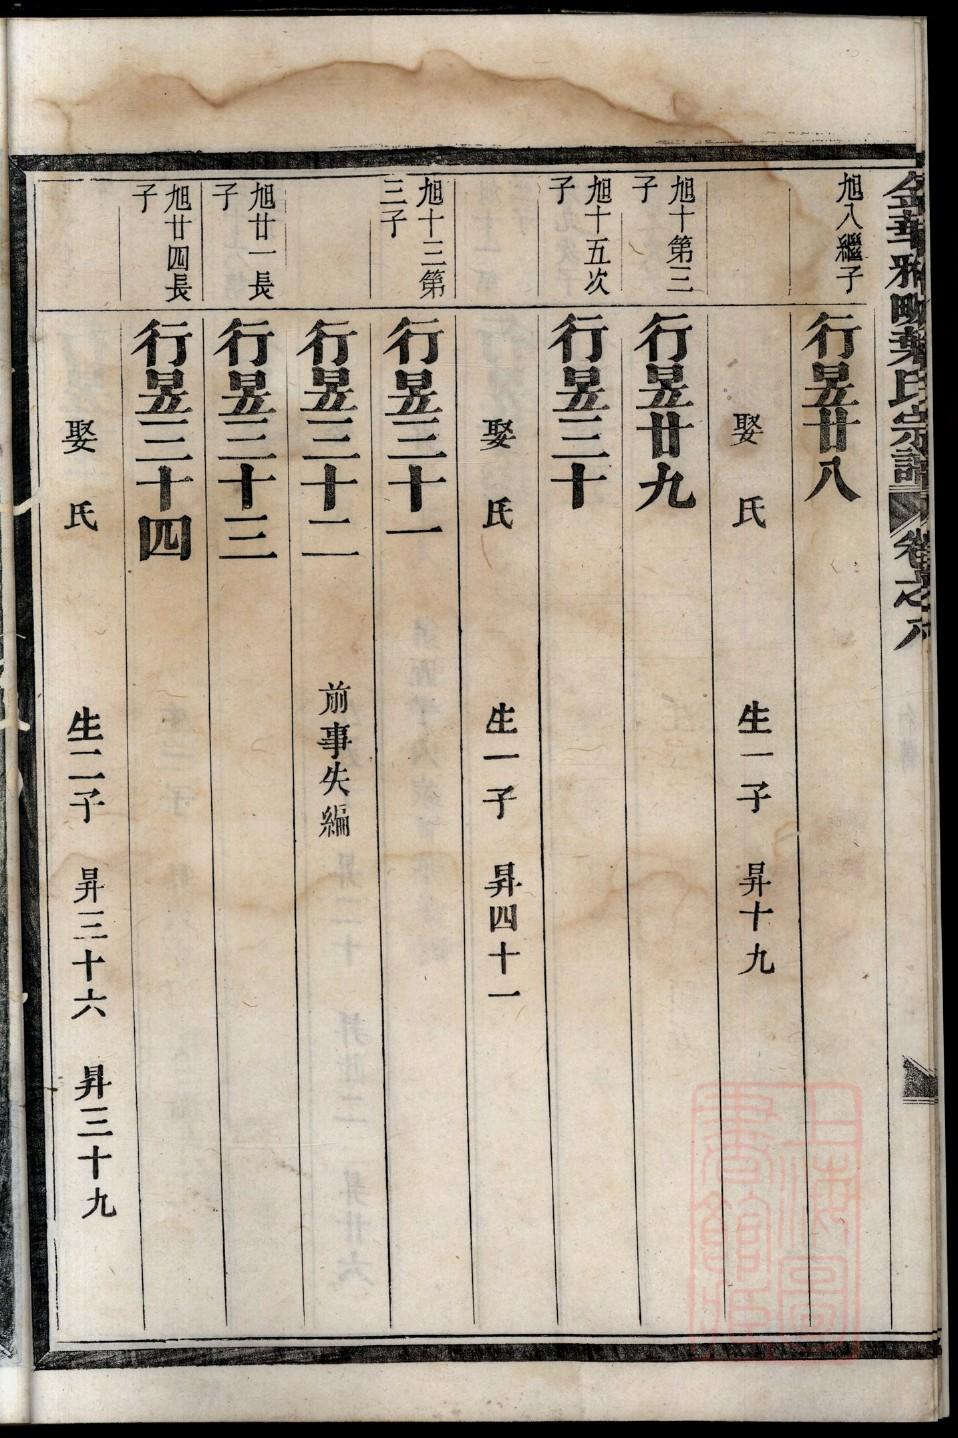 金華雅畈葉氏宗譜 卷之六
旭入繼子
行昱廿八
娶 氏 生一子 昇十九
旭十第三子
行昱廿九
旭十五次子
行昱三十
娶 氏 生一子 昇四十一
旭十三第三子
行昱三十一
行昱三十二 前事失編
旭廿一長子
行昱三十三
旭廿四長子
行昱三十四
娶 氏 生二子 昇三十六 昇三十九
上海圖書館藏